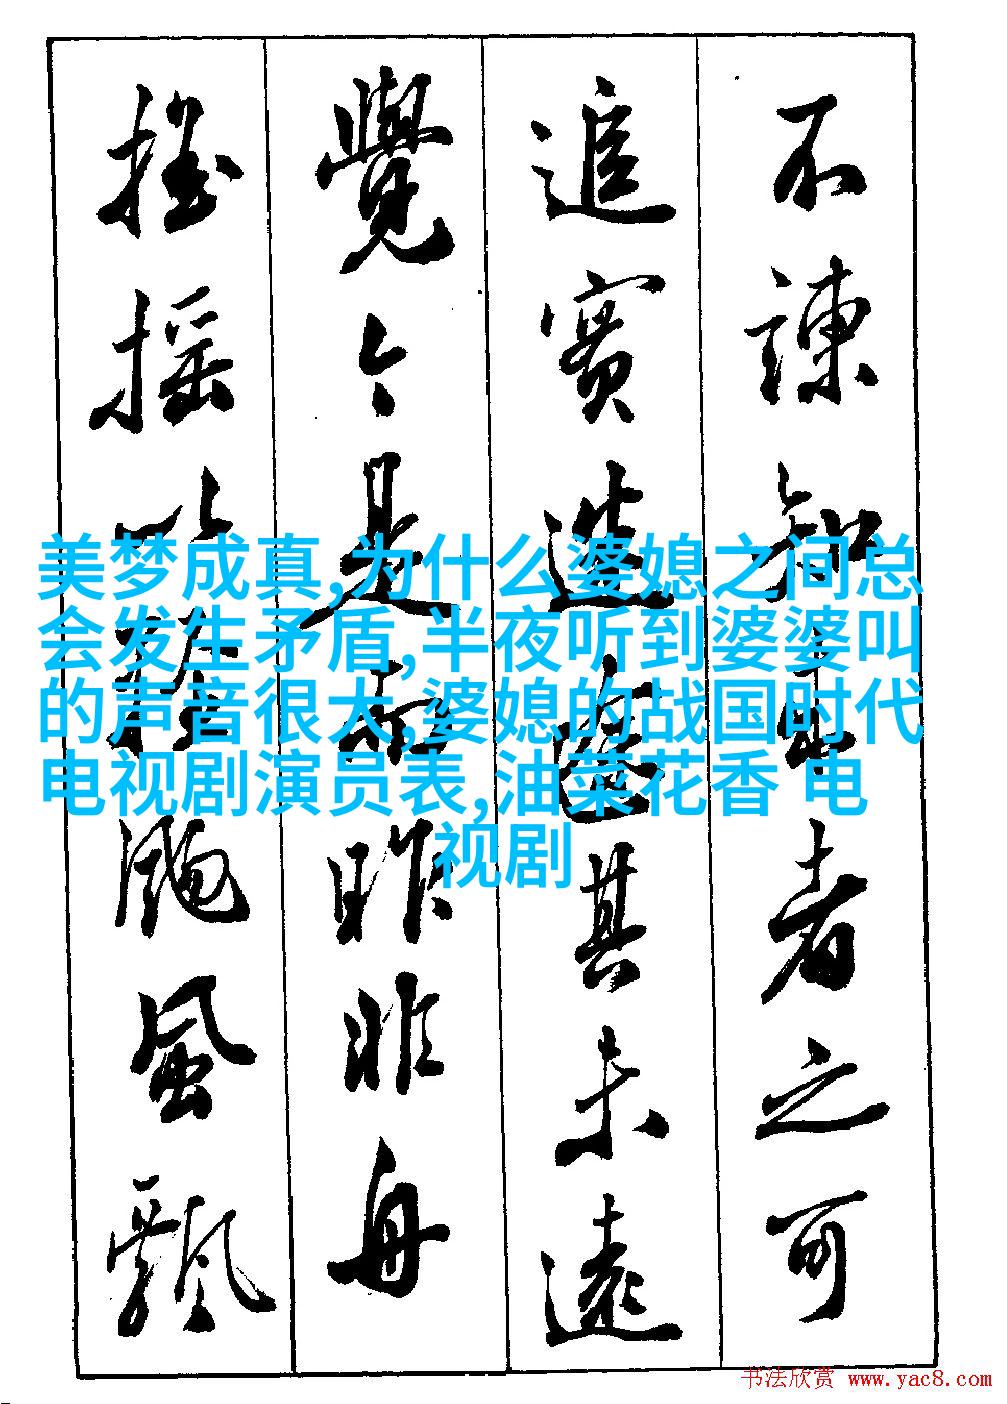 不諫知来者之可
追實迷途其未遠
覺今是而昨非舟
摇摇以軽颺風飄
美梦成真,为什么婆媳之间总
会发生矛盾,半夜听到婆婆叫
的声音很大,婆媳的战国时代
电视剧演员表,油菜花香 电
视剧
书法欣赏 www.yac8.com